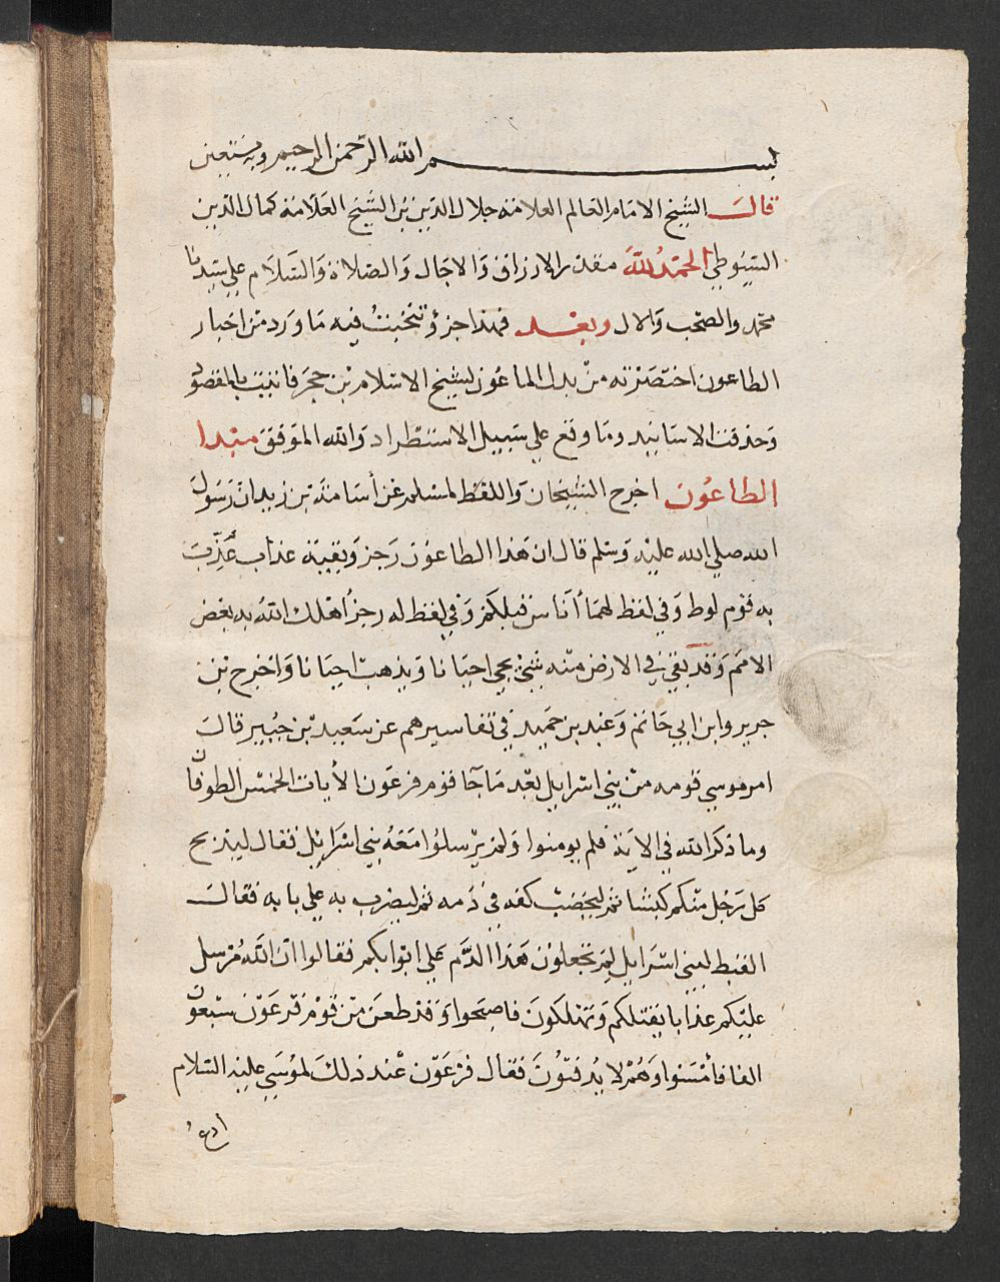 بسم الله الرحمن الرحيم وبه نستعين
قال الشيخ الامام العالم العلامة جلال الدين بن الشيخ العلامة كمال الدين
السيوطي الحمد لله مقدر الارزاق والاجال والصلاة والسلام علي سيدنا
محمد والصحب والال وبعد فهذا جزؤ تتبعت فيه ما ورد من اخبار
الطاعون اختصرته من بذل الماعون لشيخ الاسلام بن حجر فاتيت بالمقصود
وحذفت الاسانيد وما وقع علي سبيل الاستطراد والله الموفق مبدا
الطاعون اخرج الشيخان واللفظ لمسلم عن أسامة بن زيد ان رسول
الله صلي الله عليه وسلم قال ان هذا الطاعون رجز وبقية عذاب عُذِّب
به قوم لوط وفي لفظ لهما أناس قبلكم وفي لفظ له رجزاهلك الله به بعض
الامم وقد بقي في الارض منه شئ يجي احيانا ويذهب احيانا واخرج بن
جرير وابن ابي حاتم وعبد بن حميد في تفاسيرهم عن سعيد بن جبير قال
امر موسي قومه من بني اسرايل بعد ما جآ قوم فرعون الأيات الخمس الطوفان
وما ذكر الله في الاية فلم يومنوا ولم يرسلوا معه بني اسرايل فقال ليذبح
كل رجل منكم كبشا ثم ليخضب كفه في دمه ثم ليضرب به علي بابه فقالت
القبط لبني اسرايل لم تجعلون هذا الدم علي ابوابكم فقالوا ان الله مرسل
عليكم عذابا يقتلكم وتهلكون فاصبحوا وقد طعن من قوم فرعون سبعون
الفا فأمسوا وهم لا يدفنون فقال فرعون عند ذلك لموسي عليه السلام
أدع